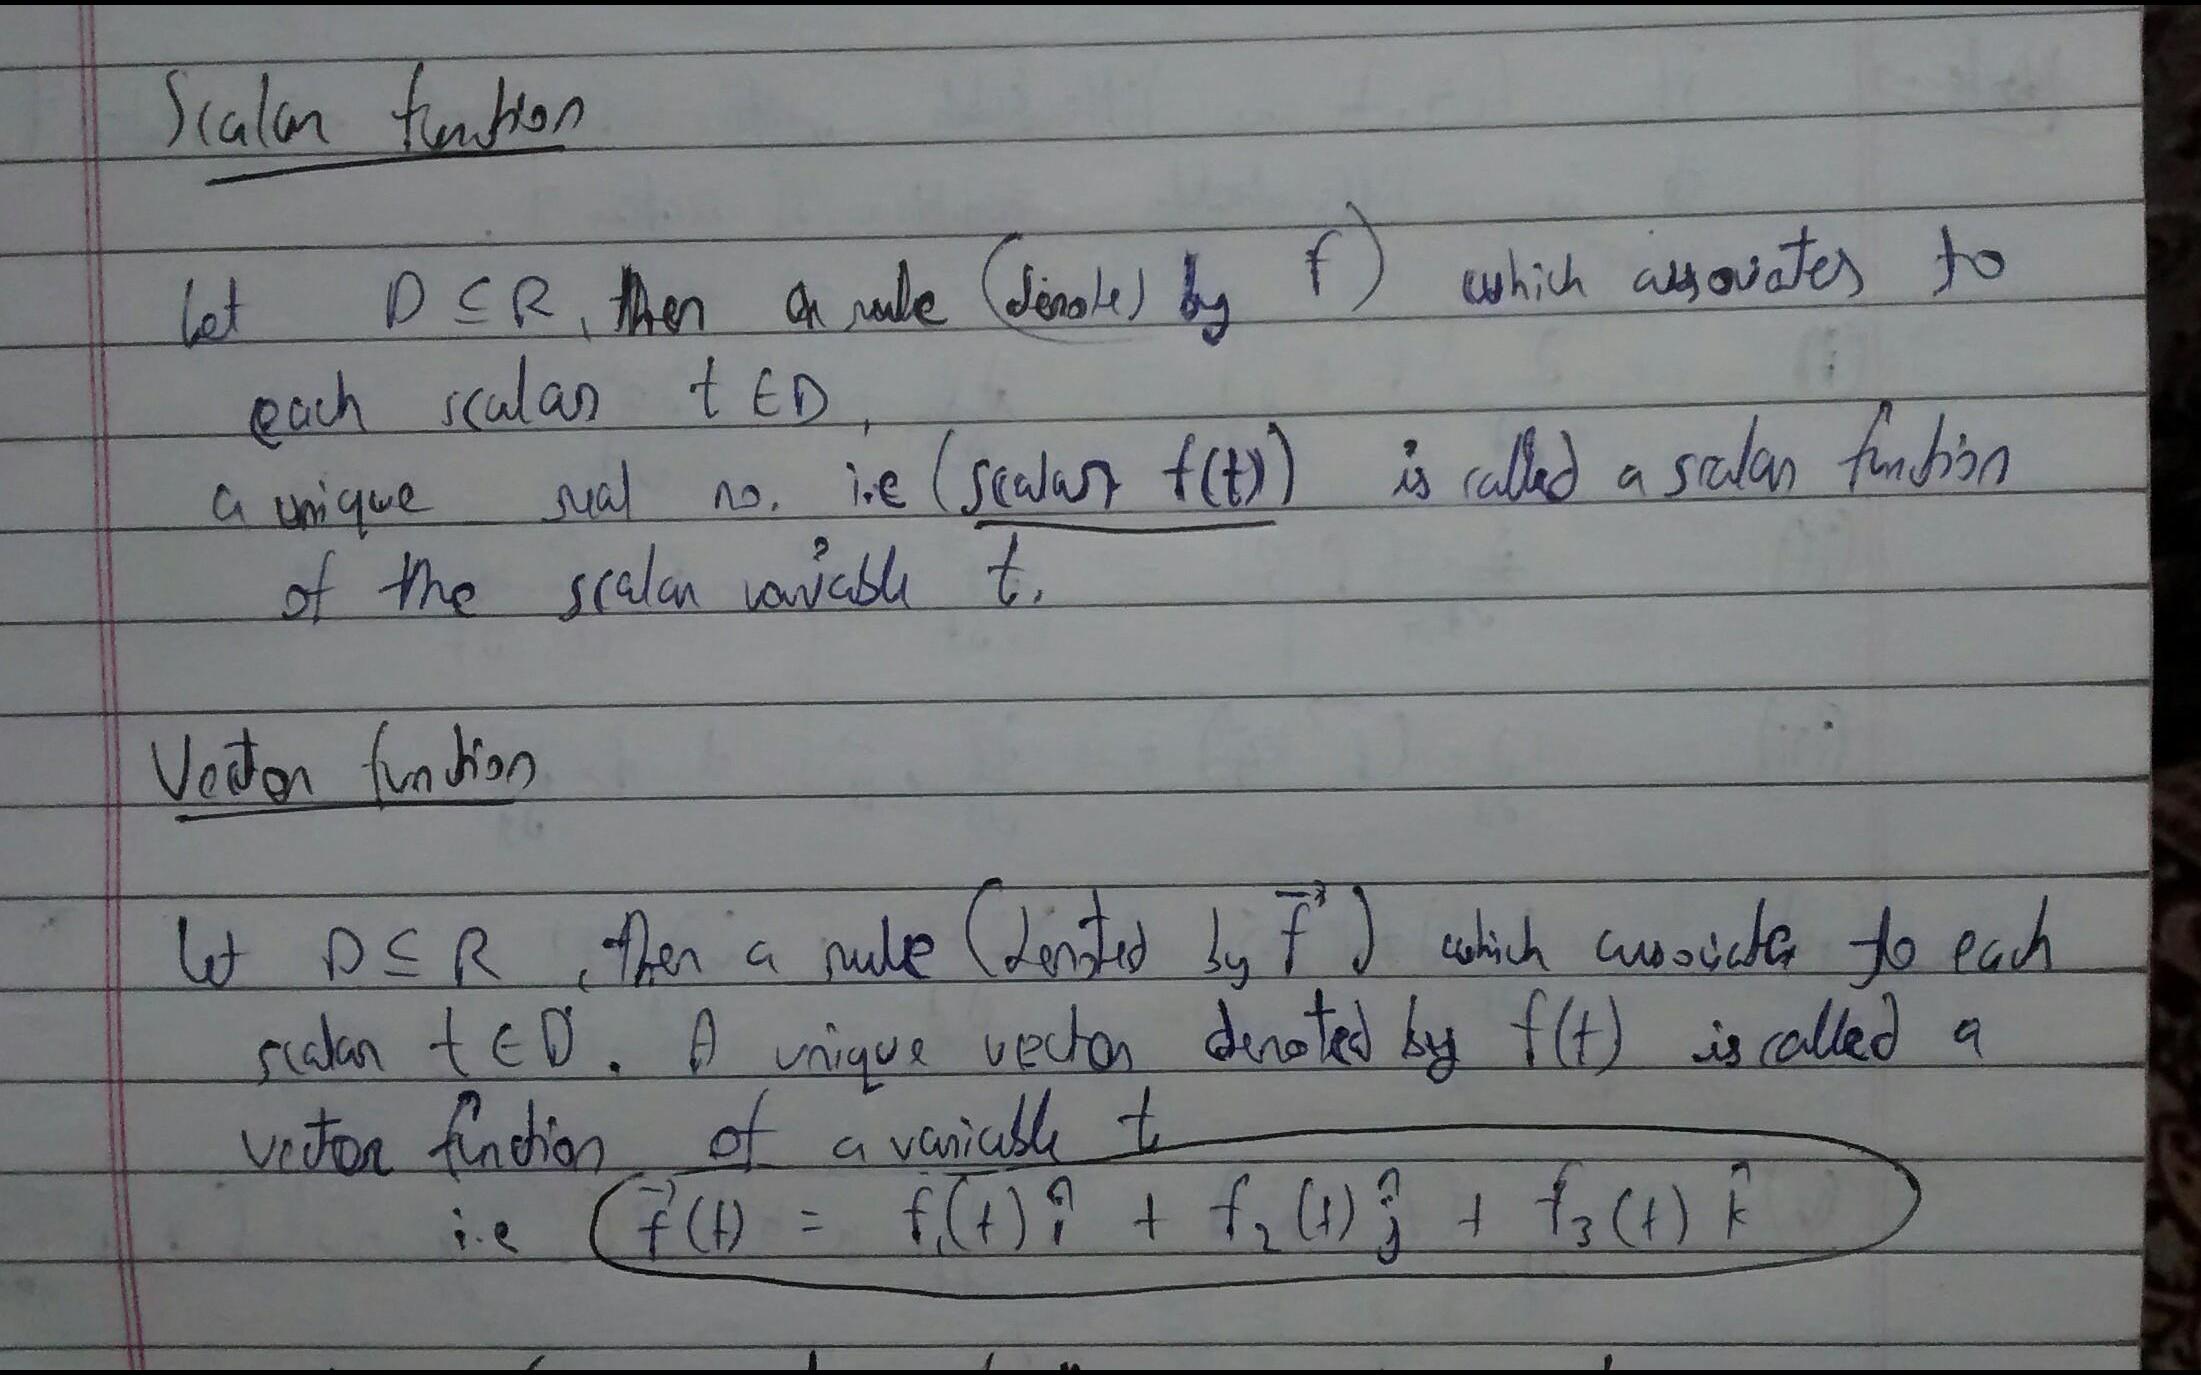 Scalar function
Let D ⊆ R, then a rule (denoted by f) which associates to
each scalar t ∈ D,
a unique real no. i.e (scalar f(t)) is called a scalar function
of the scalar variable t.
Vector function
let D ⊆ R, then a rule (denoted by f⃗) which associate to each
scalar t ∈ D. A unique vector denoted by f(t) is called a
vector function of a variable t
i.e f⃗(t) = f₁(t) î + f₂(t) ĵ + f₃(t) k̂